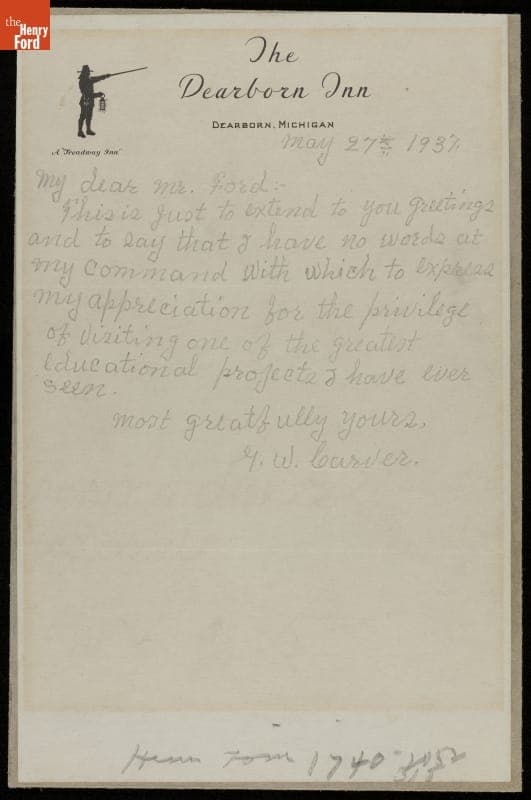 the
Henry
Ford
The
Dearborn Inn
DEARBORN, MICHIGAN
A "Treadway Inn"
May 27th 1937.
My dear Mr. Ford:-
This is just to extend to you greetings
and to say that I have no words at
my command with which to express
my appreciation for the privilege
of visiting one of the greatest
educational projects I have ever
seen.
Most greatfully yours,
G. W. Carver.
1740